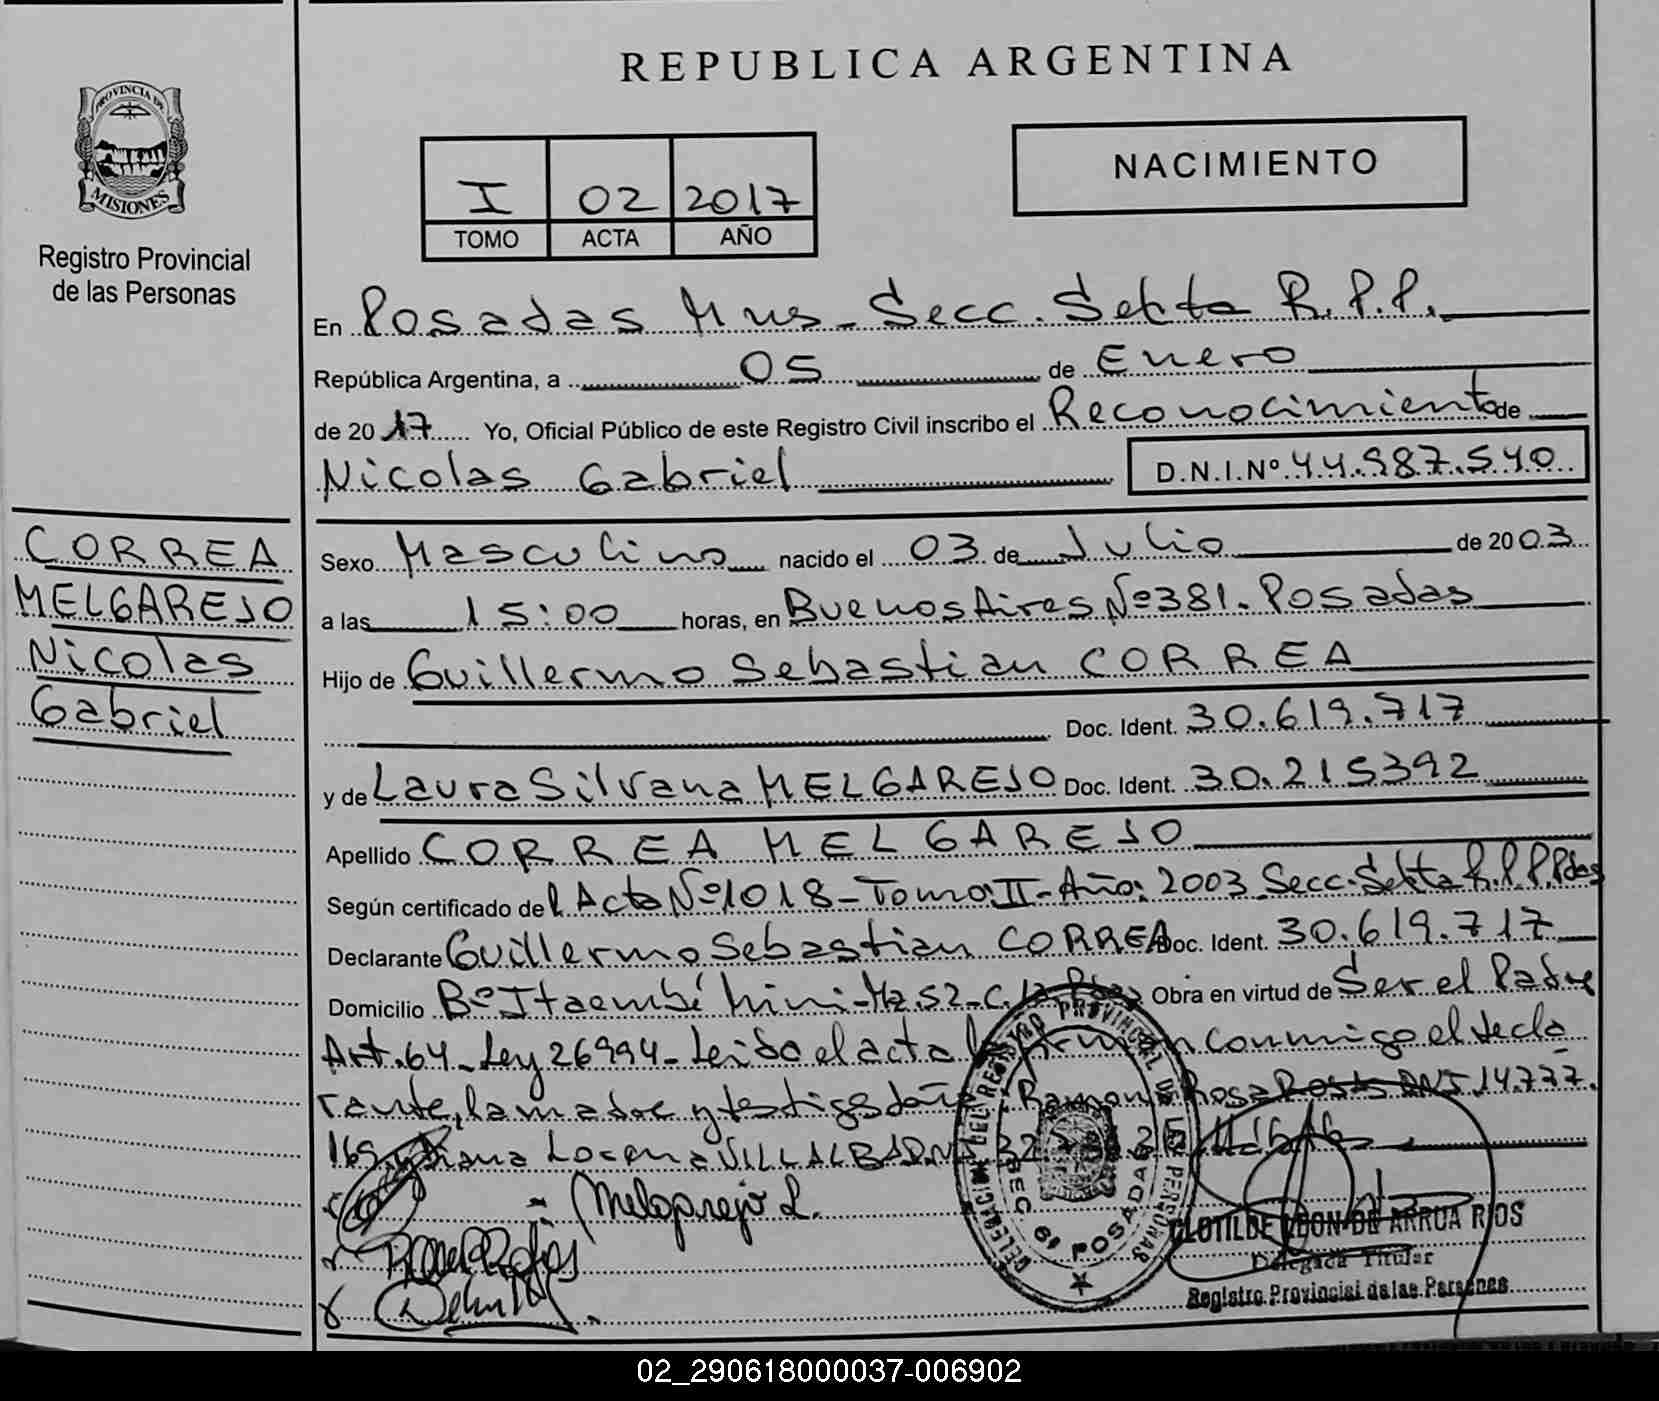 REPUBLICA ARGENTINA
PROVINCIA DE
MISIONES
Registro Provincial
de las Personas
I 02 2017
TOMO ACTA AÑO
NACIMIENTO
En Posadas Mns - Secc. Sekta R.P.P.
República Argentina, a 05 de Enero
de 2017 Yo, Oficial Público de este Registro Civil inscribo el Reconocimiento de
Nicolas Gabriel D.N.I.Nº 44.987.540
CORREA
MELGAREJO
Nicolas
Gabriel
Sexo Masculino nacido el 03 de Julio de 2003
a las 15:00 horas, en Buenos Aires Nº 381. Posadas
Hijo de Guillermo Sebastian CORREA
Doc. Ident. 30.619.717
y de Laura Silvana MELGAREJO Doc. Ident. 30.215392
Apellido CORREA MELGAREJO
Según certificado del Acta Nº 1018 - Tomo: II - Año: 2003 Secc. Sekta R.P.P. Pdas
Declarante Guillermo Sebastian CORREA Doc. Ident. 30.619.717
Domicilio Bº Itaembé Mini - Mz 52 - C. Obra en virtud de Ser el Padre
Art. 64 - Ley 26994 - Leido el acta conmigo el decla
rante, la madre y testigos Ramona Rosa DNI 14.777.
169 y Lorena VILLALBA DNI
Melgarejo L.
DELEGACION DEL REGISTRO PROVINCIAL DE LAS PERSONAS
SEC 6ª POSADAS
CLOTILDE LEON DE ARRUA RIOS
Delegada Titular
Registro Provincial de las Personas
02_290618000037-006902